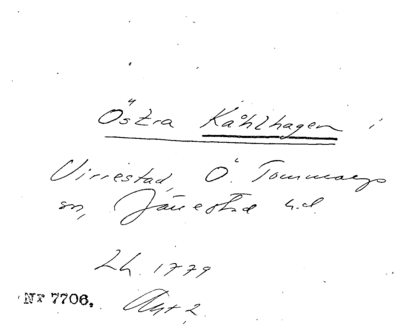 Östra Kåhlhagen i
Virrestad, Ö. Tommarps
sn, Järrestad h.d.
Lh. 1779
Nr 7706. Akt 2.